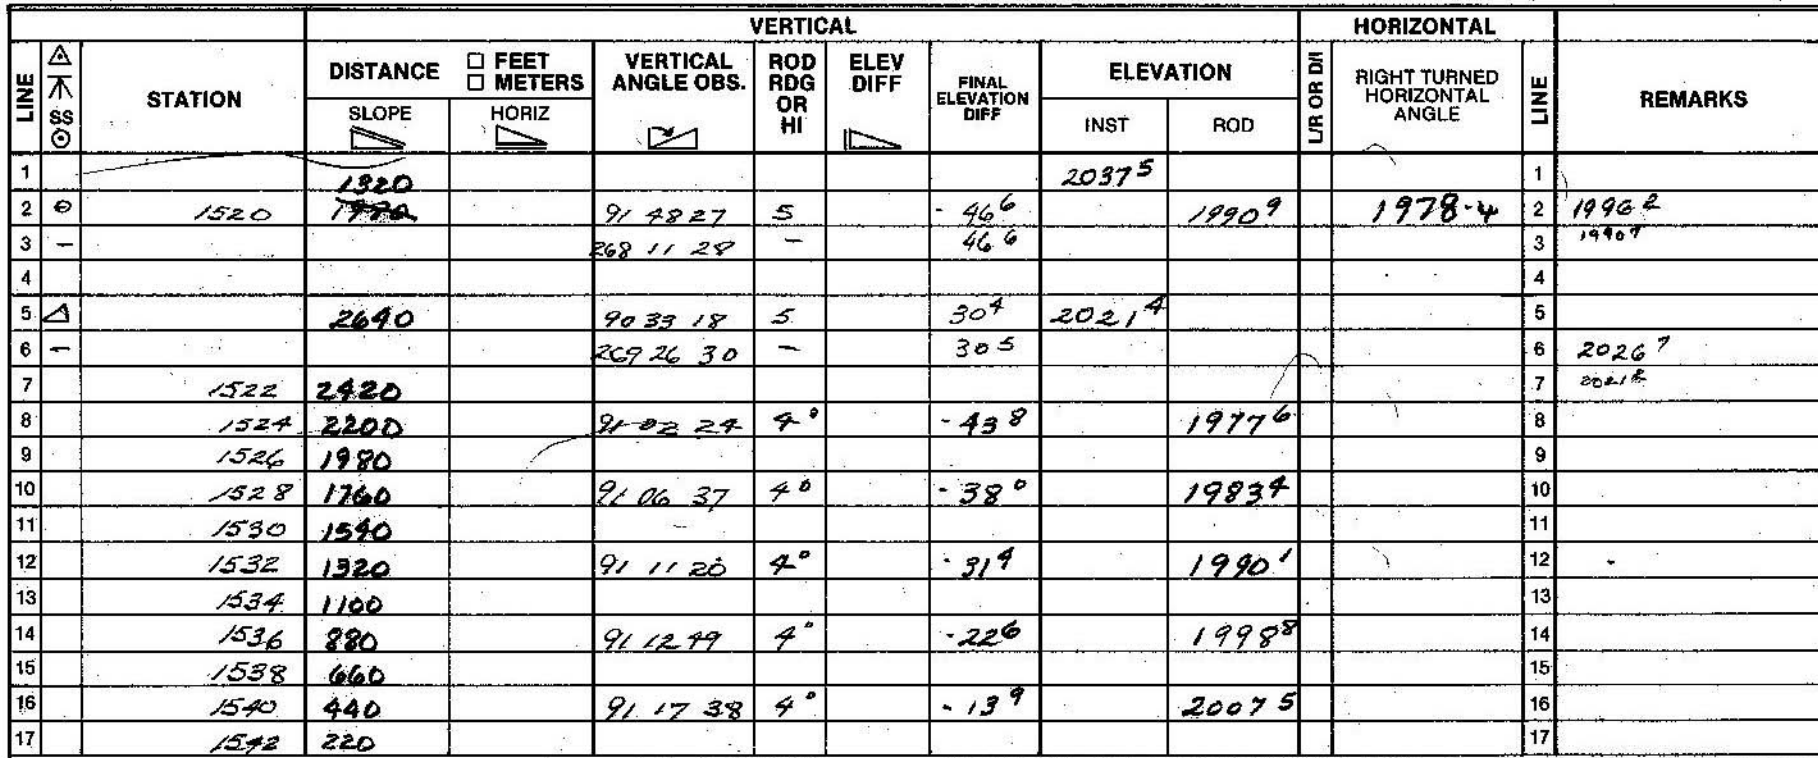 VERTICAL HORIZONTAL
LINE SS STATION DISTANCE □ FEET □ METERS SLOPE HORIZ VERTICAL ANGLE OBS. ROD RDG OR HI ELEV DIFF FINAL ELEVATION DIFF ELEVATION INST ROD L/R OR D/I RIGHT TURNED HORIZONTAL ANGLE LINE REMARKS
1 1320 2037 5 1
2 1520 91 48 27 5 - 46 6 1990 9 1978.4 2 1996 2
3 — 268 11 28 — 46 6 3 1990 7
4 4
5 2640 90 33 18 5 30 4 2021 4 5
6 — 269 26 30 — 30 5 6 2026 7
7 1522 2420 7
8 1524 2200 91 02 24 4 0 - 43 8 1977 6 8
9 1526 1980 9
10 1528 1760 91 06 37 4 0 - 38 0 1983 4 10
11 1530 1540 11
12 1532 1320 91 11 20 4 0 - 31 4 1990 1 12
13 1534 1100 13
14 1536 880 91 12 49 4 0 - 22 6 1998 8 14
15 1538 660 15
16 1540 440 91 17 38 4 0 - 13 9 2007 5 16
17 1542 220 17